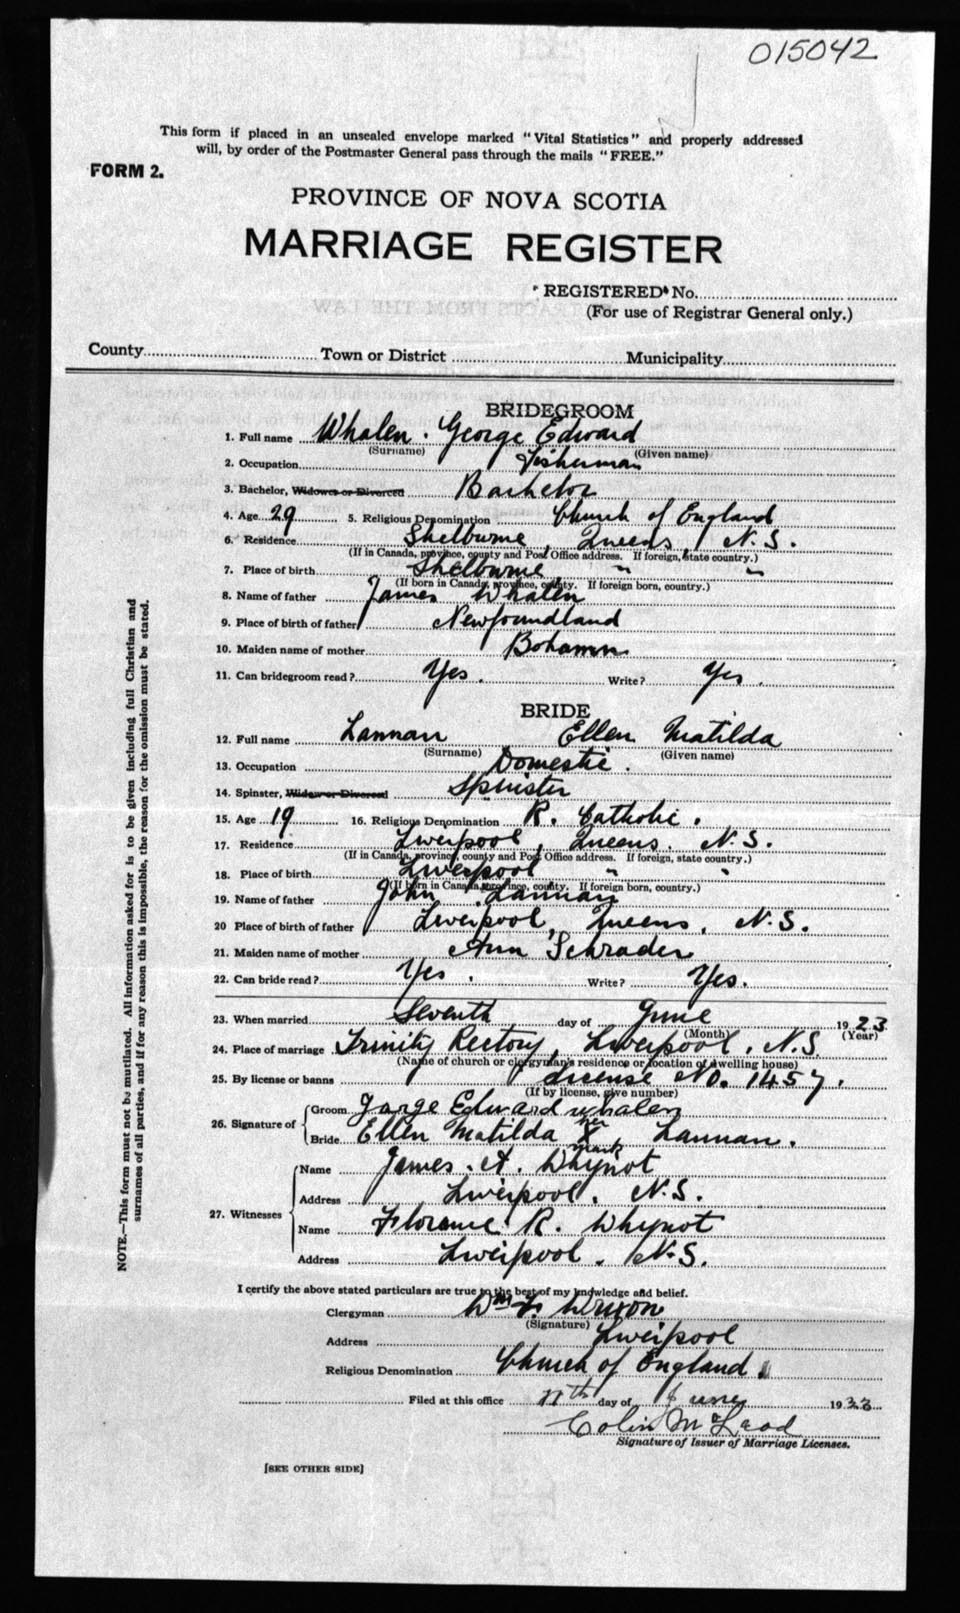 015042
This form if placed in an unsealed envelope marked "Vital Statistics" and properly addressed
will, by order of the Postmaster General pass through the mails "FREE."
FORM 2.
PROVINCE OF NOVA SCOTIA
MARRIAGE REGISTER
REGISTERED No.
(For use of Registrar General only.)
County Town or District Municipality
BRIDEGROOM
1. Full name Whalen. George Edward
(Surname) (Given name)
2. Occupation Fisherman
3. Bachelor, Widower or Divorced Bachelor
4. Age 29 5. Religious Denomination Church of England
6. Residence Shelburne, Queens, N.S.
(If in Canada, province, county and Post Office address. If foreign, state country.)
7. Place of birth Shelburne " "
(If born in Canada, province, county. If foreign born, country.)
8. Name of father James Whalen
9. Place of birth of father Newfoundland
10. Maiden name of mother
11. Can bridegroom read? Yes. Write? Yes.
BRIDE
12. Full name Lannan Ellen Matilda
(Surname) (Given name)
13. Occupation Domestic.
14. Spinster, Widow or Divorced Spinster
15. Age 19 16. Religious Denomination R. Catholic.
17. Residence Liverpool, Queens. N.S.
(If in Canada, province, county and Post Office address. If foreign, state country.)
18. Place of birth Liverpool " "
(If born in Canada, province, county. If foreign born, country.)
19. Name of father John Lannan
20 Place of birth of father Liverpool, Queens, N.S.
21. Maiden name of mother Ann Schrader
22. Can bride read? Yes. Write? Yes.
23. When married Seventh day of June 1923
(Month) (Year)
24. Place of marriage Trinity Rectory, Liverpool, N.S.
(Name of church or clergyman's residence or location of dwelling house)
25. By license or banns License No. 1457.
(If by license, give number)
26. Signature of Groom Gorge Edward whalen
Bride Ellen Matilda her X mark Lannan.
27. Witnesses Name James. A. Whynot
Address Liverpool. N.S.
Name Florence R. Whynot
Address Liverpool. N.S.
I certify the above stated particulars are true to the best of my knowledge and belief.
Clergyman Wm
(Signature)
Address Liverpool
Religious Denomination Church of England.
Filed at this office 11th day of June 1923
Colin McLeod
Signature of Issuer of Marriage Licenses.
[SEE OTHER SIDE]
NOTE.—This form must not be mutilated. All information asked for is to be given including full Christian and
surnames of all parties, and if for any reason this is impossible, the reason for the omission must be stated.